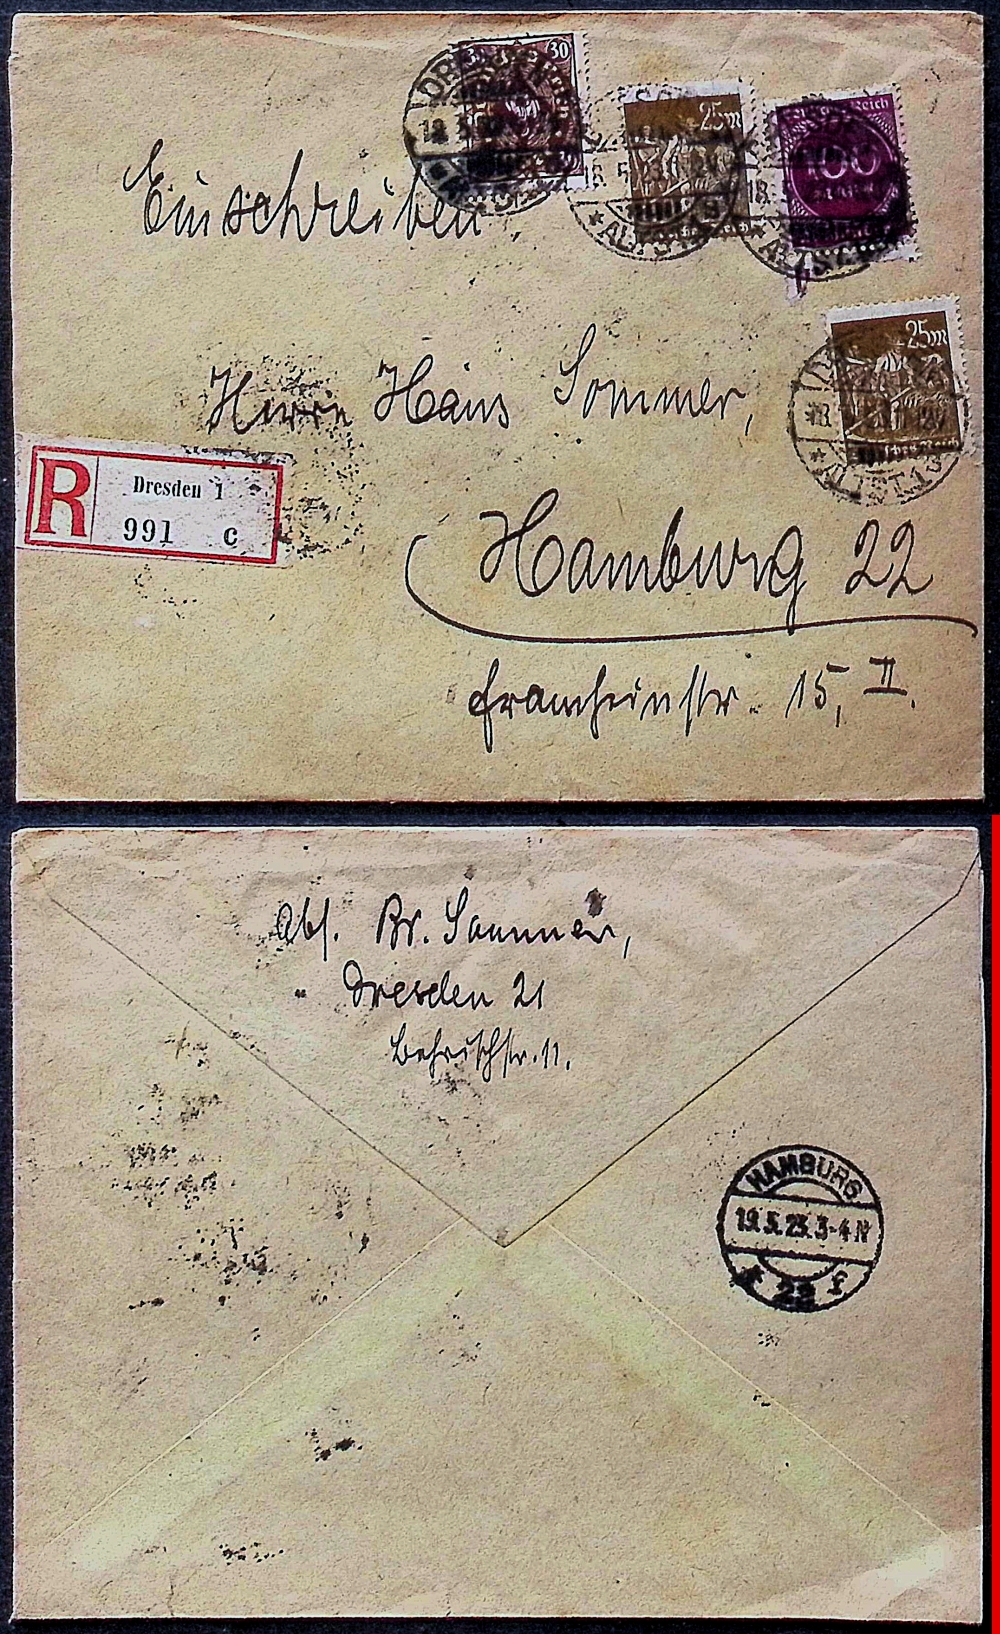 30
25m
100
Einschreiben
Herrn Hans Sommer,
25m
R Dresden 1
991 c
Hamburg 22
15, II.
Abs. Br. Sommer,
Dresden 21
Behrischstr. 11.
HAMBURG
19.5.23. 3-4 N
* 22 f